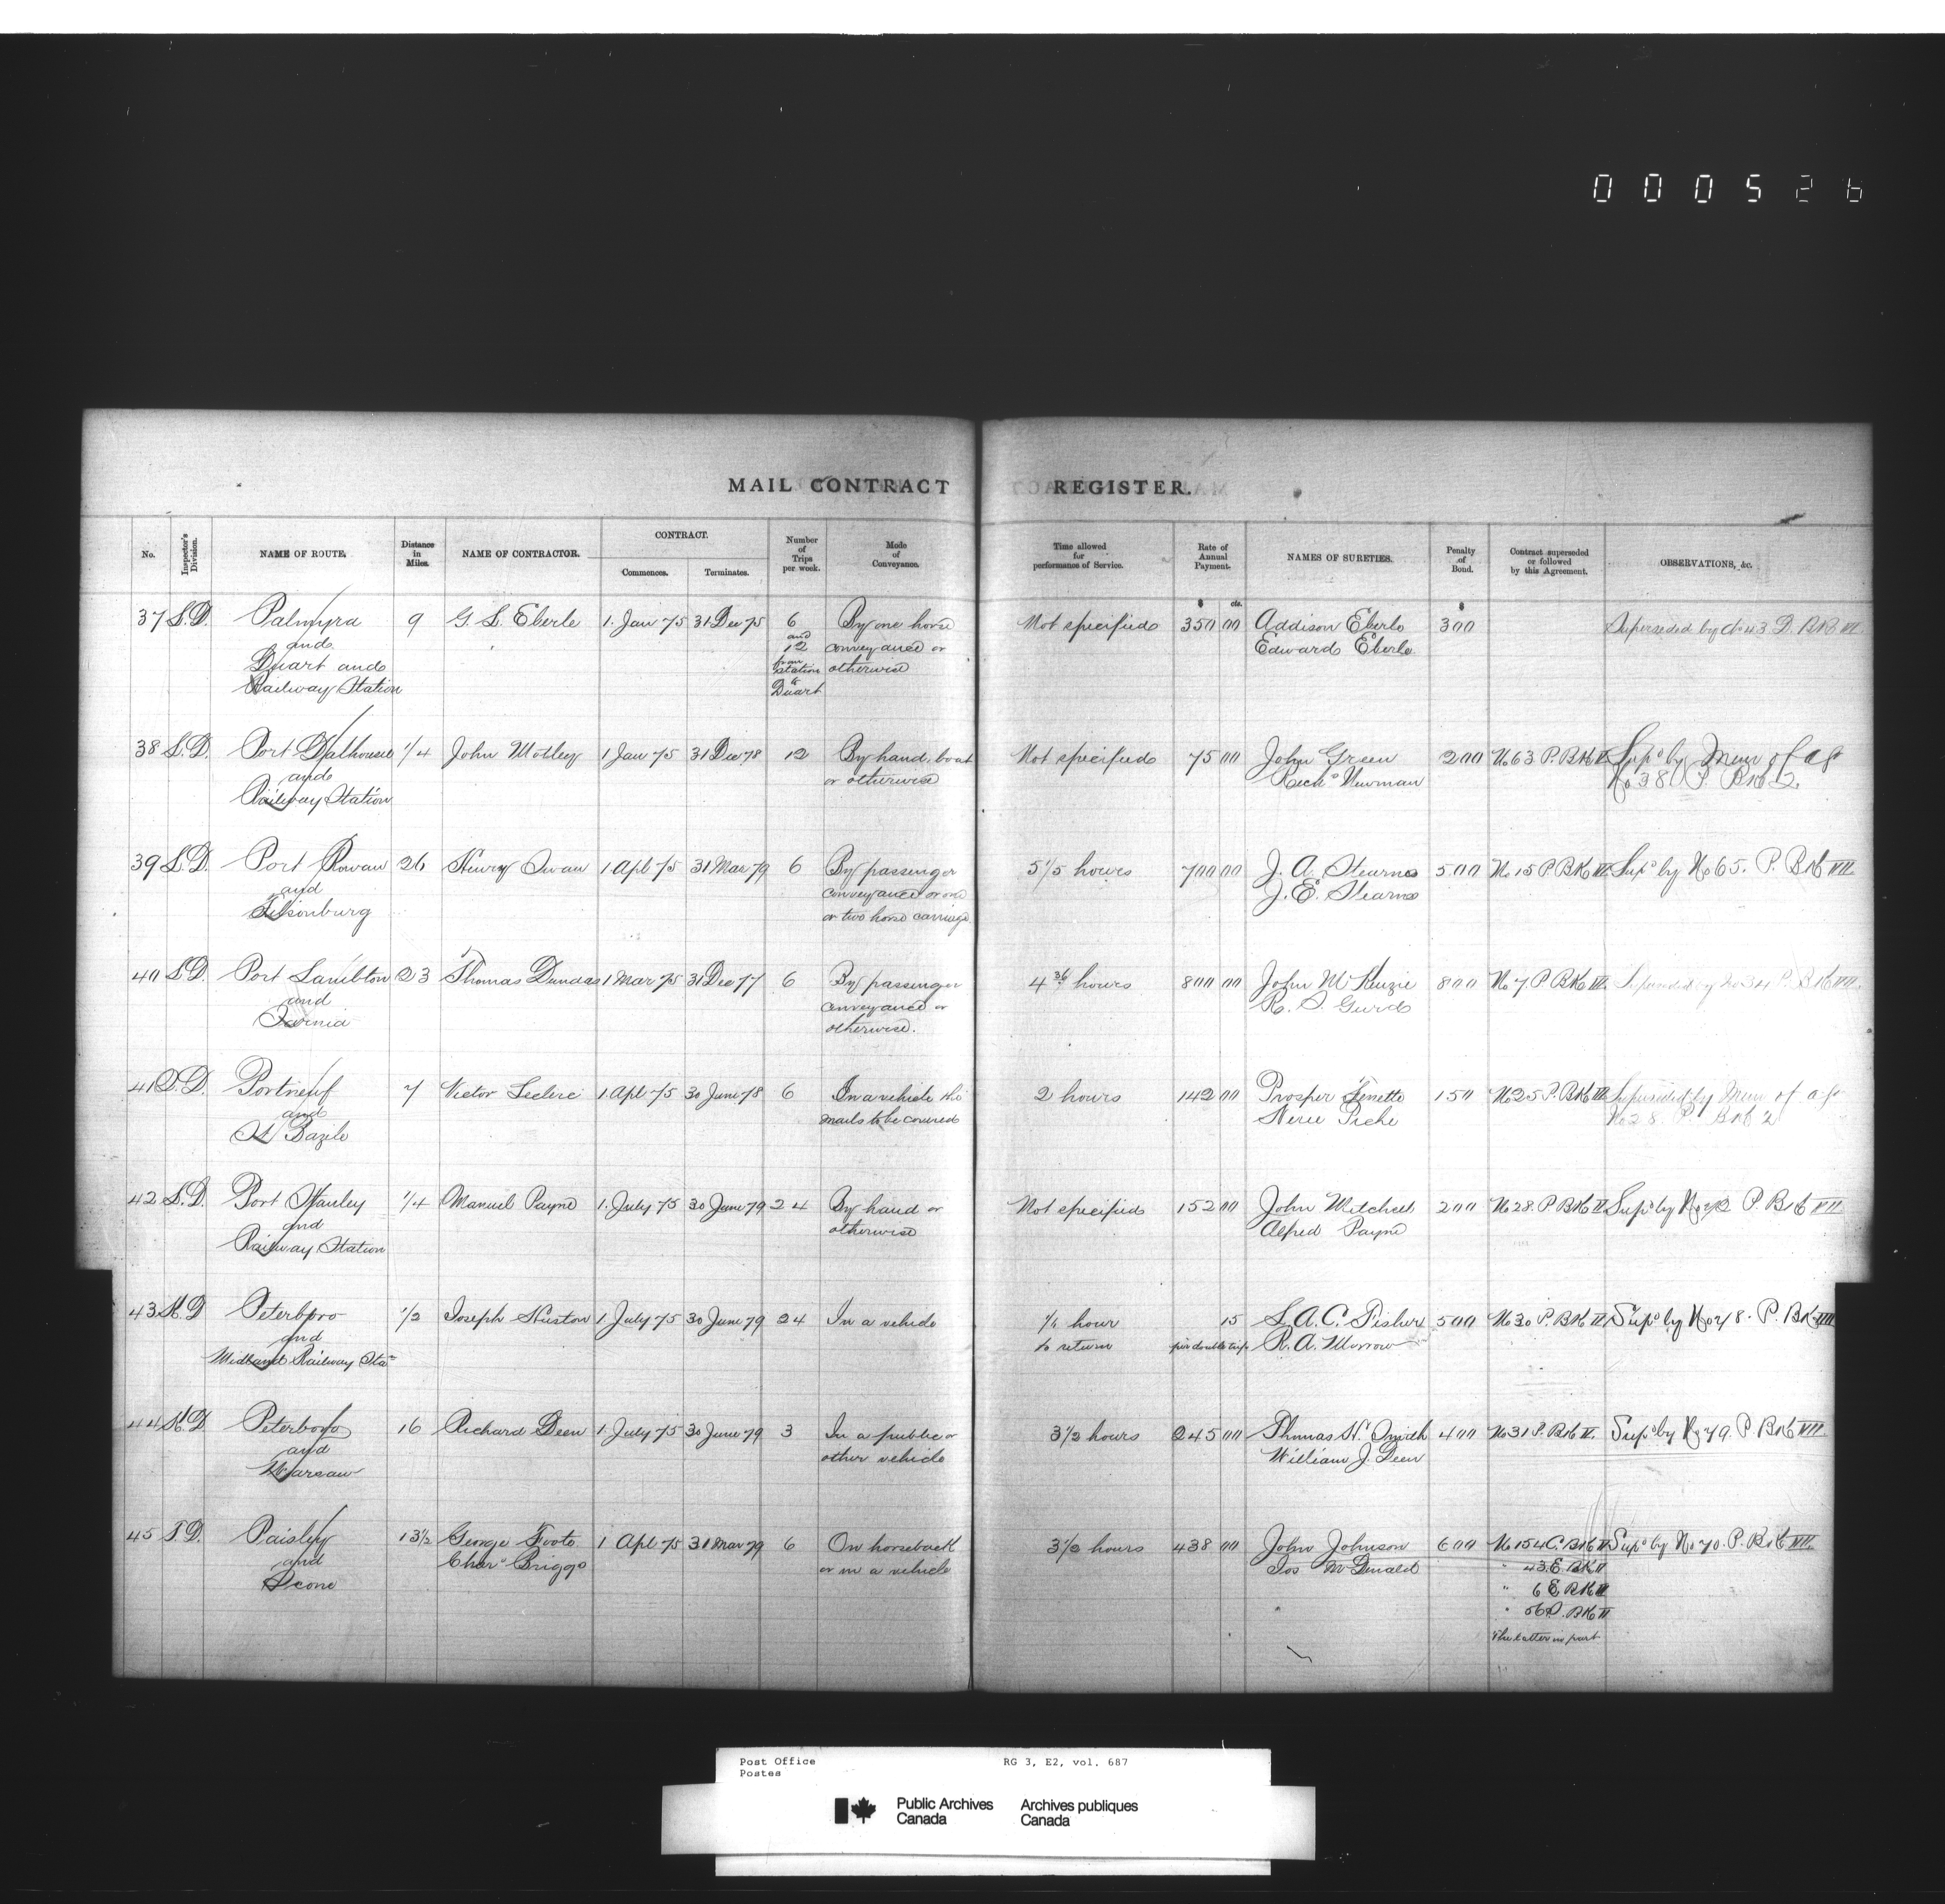 000526
MAIL CONTRACT REGISTER.
No. Inspector's Division. NAME OF ROUTE. Distance in Miles. NAME OF CONTRACTOR. CONTRACT. Commences. Terminates. Number of Trips per week. Mode of Conveyance. Time allowed for performance of Service. Rate of Annual Payment. NAMES OF SURETIES. Penalty of Bond. Contract superseded or followed by this Agreement. OBSERVATIONS, &c.
$ cts. $
37 L.D. Palmyra 9 G. L. Eberle 1. Jan 75 31 Dec 75 6 By one horse Not specified 350 00 Addison Eberle 300 Superseded by No 43 D. BK VII
and and 12 conveyance or Edward Eberle
Duart and from station otherwise
Railway Station to Duart
38 L.D. Port Dalhousie 1/4 John Motley 1 Jan 75 31 Dec 78 12 By hand, boat Not specified 75 00 John Green 200 No 63 P. BK II Supd by Mem of agt
and or otherwise Richd Newman No 38 P. BK 2.
Railway Station
39 L.D. Port Rowan 26 Henry Swan 1 Apl 75 31 Mar 79 6 By passenger 5 1/5 hours 700 00 J. A. Stearns 500 No 15 P BK Supd by No 65. P. BK VII.
and conveyance or one J. E. Stearns
Tilsonburg or two horse carriage
40 L.D. Port Lambton 23 Thomas Dundas 1 Mar 75 31 Dec 77 6 By passenger 4 36 hours 800 00 John McKenzie 800 No 7 P BK Superseded by No 34 P. BK VII.
and conveyance or R. S. Gurd
Sarnia otherwise.
41 Q.D. Portneuf 7 Victor Leclerc 1 Apl 75 30 June 78 6 In a vehicle the 2 hours 142 00 Prosper 150 No 25 P. BK Superseded by Mem of agt
and mails to be covered Piche No 28 P. BK 2
St Bazile
42 L.D. Port Stanley 1/4 Manuel Payne 1. July 75 30 June 79 24 By hand or Not specified 152 00 John Mitchell 200 No 28. P BK II Supd by No P. BK VII
and otherwise Alfred Payne
Railway Station
43 K.D Peterboro 1/2 Joseph Huston 1 July 75 30 June 79 24 In a vehicle 1/4 hour 15 S. A. C. Fisher 500 No 30 P. BK II Supd by No 78. P. BK VII
and to return per double trip R. A. Morrow
Midland Railway Sta
44 K.D Peterboro 16 Richard Deen 1. July 75 30 June 79 3 In a public or 3 1/2 hours 245 00 Thomas H. Smith 400 No 31 P. BK II. Supd by No 79. P. BK VII.
and other vehicle William J. Deen
Warsaw
45 T.D. Paisley 13 1/2 George Foote 1 Apl 75 31 Mar 79 6 On horseback 3 1/2 hours 438 00 John Johnson 600 No 154 C. BK II Supd by No 70. P. BK VII.
and Chas Briggs or in a vehicle Jos McDonald " 43 E BK II
Scone " 6 E BK II
" 56 P. BK II
The latter in part
Post Office RG 3, E2, vol. 687
Postes
Public Archives Canada
Archives publiques Canada